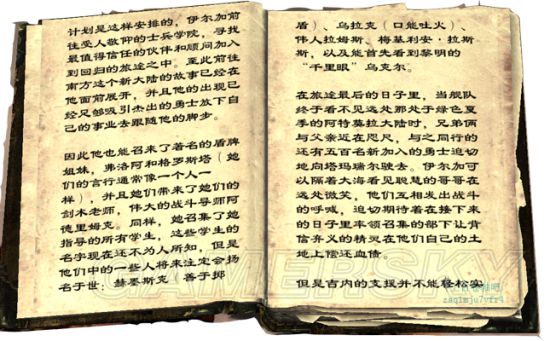 计划是这样安排的，伊尔加前
往受人敬仰的士兵学院，寻找
最值得信任的伙伴和顾问加入
到回归的旅途之中。至此前往
南方这个新大陆的故事已经在
他面前展开，并且他的出现已
经足够吸引杰出的勇士放下自
己的事业去跟随他的脚步。
因此他也能召来了著名的盾牌
姐妹，弗洛和格罗斯塔（她
们的言行通常像一个人一
样），并且她们带来了她们的
剑术老师，伟大的战斗导师阿
德里姆克。同样，她召集了她
指导的所有学生，这些学生的
名字现在还不为人所知，但是
他们中的一些人将来注定会扬
名于世：赫墨斯克（善于掷
盾）、乌拉克（口能吐火）、
伟人拉姆斯、梅基利安·拉斯
斯，以及能首先看到黎明的
“千里眼”乌克尔。
在旅途最后的日子里，当舰队
终于看不见远处那处于绿色夏
季的阿特莫拉大陆时，兄弟俩
与父亲近在咫尺，与之同行的
还有五百名新加入的勇士迫切
地向塔玛瑞尔驶去。伊尔加可
以隔着大海看见聪慧的哥哥在
远处微笑，他们互相发出战斗
的呼喊，迫切期待着在接下来
的日子里率领召集的部下让背
信弃义的精灵在他们自己的土
地上偿还血债。
但是吉内的支援并不能轻松实
GAMERSKY
zaq1mju7yfr4